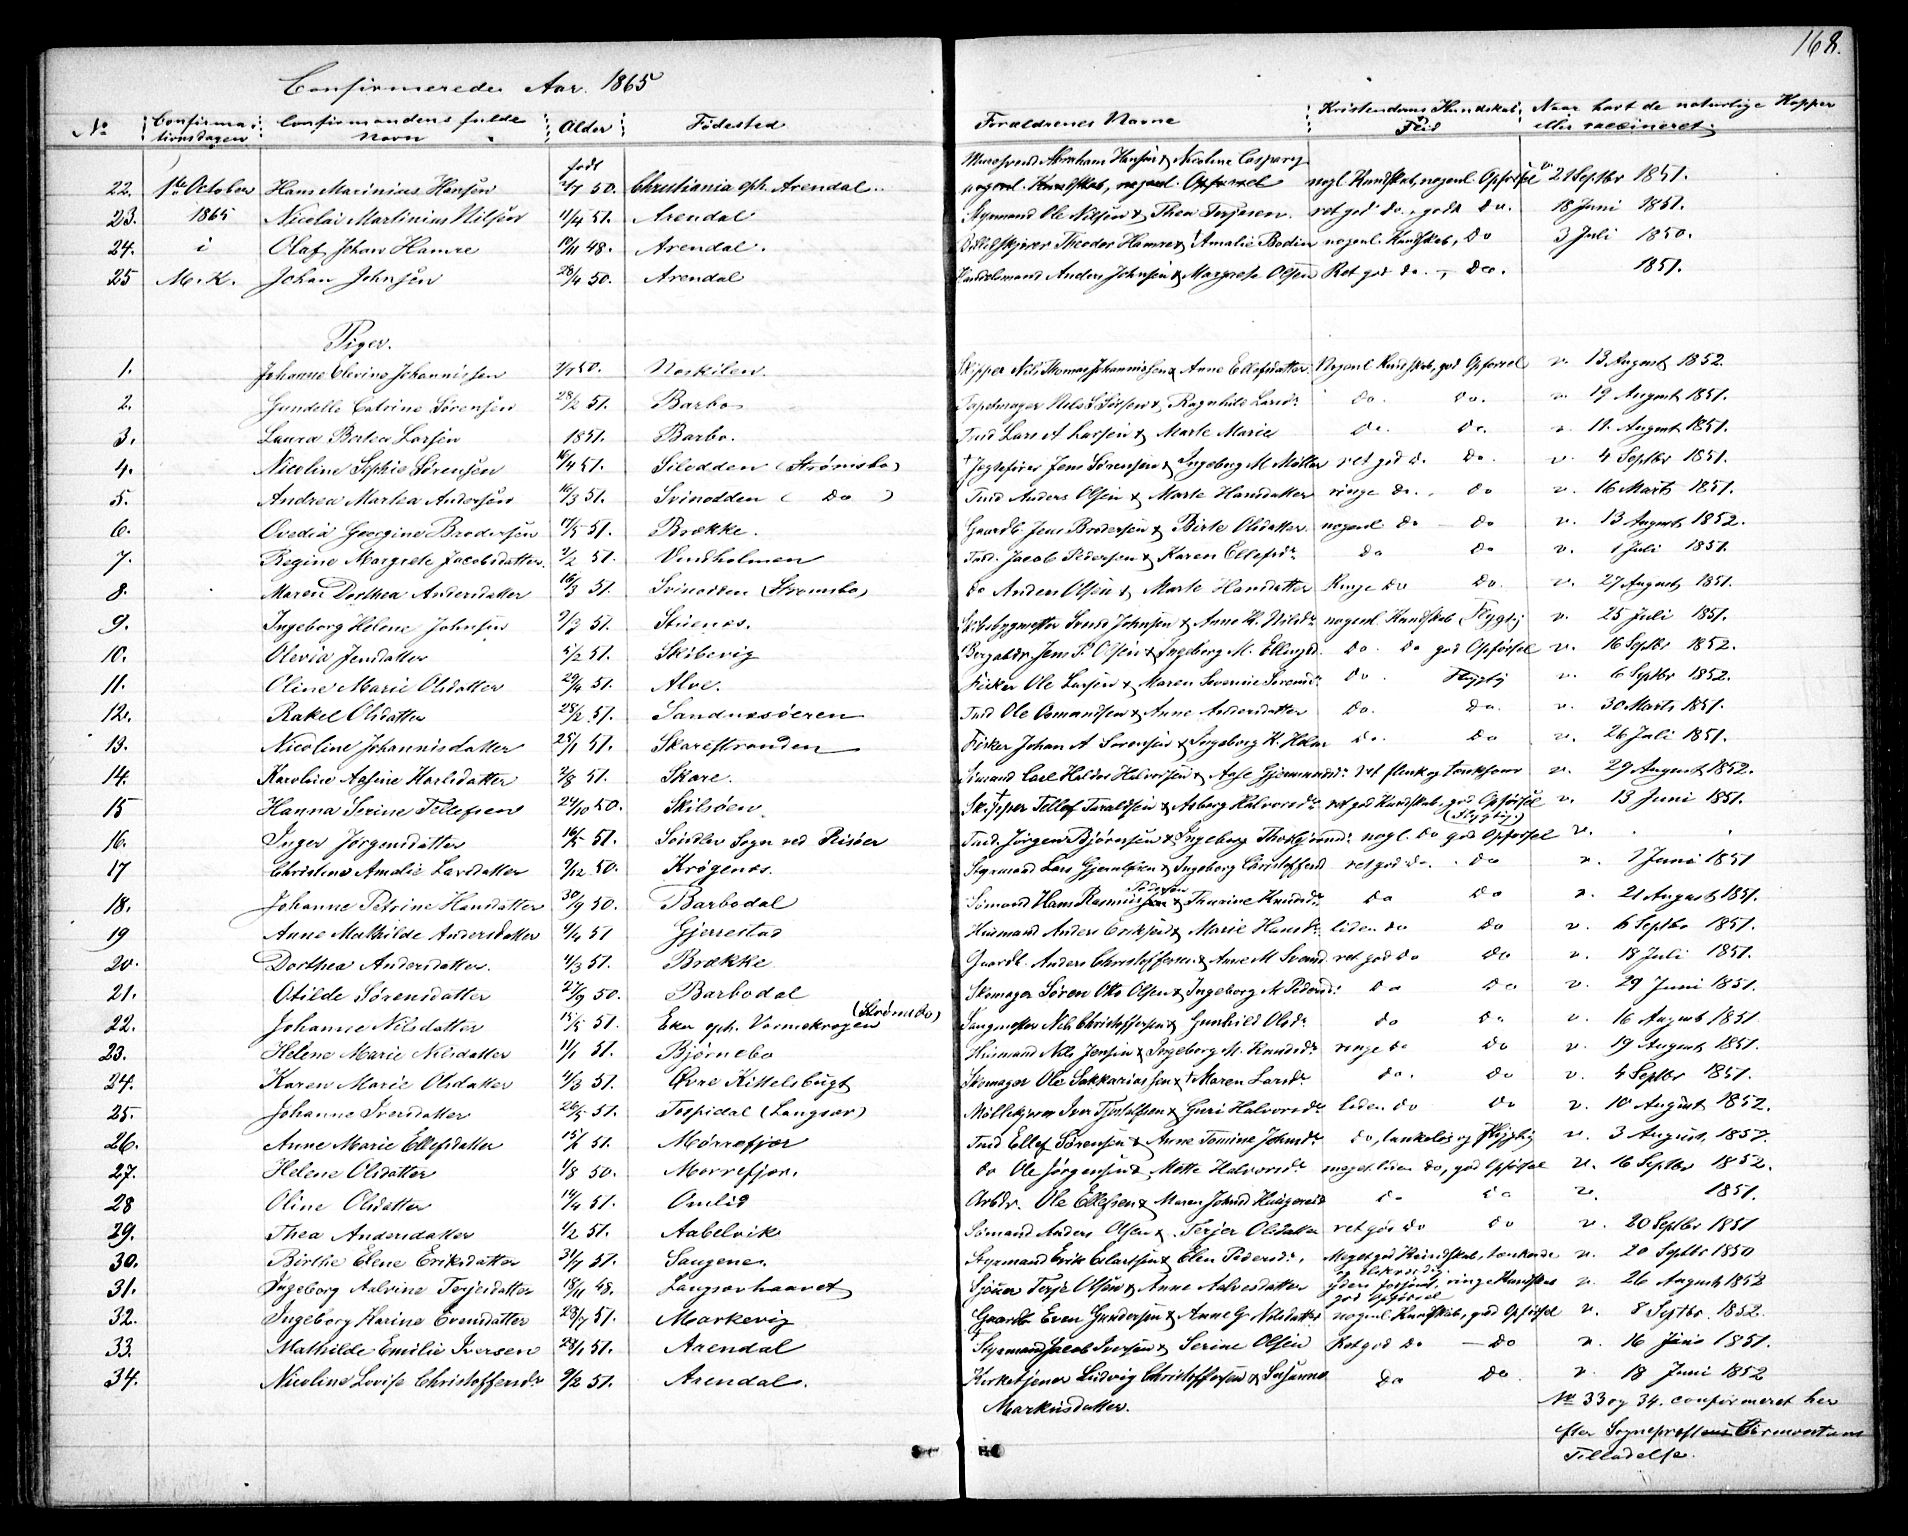 168.
Confirmerede Aar. 1865
No Confirmationsdagen Confirmandens fulde Navn Alder Födested Forældrenes Navne Kristendoms Kundskab, Flid Naar havt de naturlige Kopper eller vaccineret.
født
22. 1ste October Hans Marinius Hansen 50. Christiania oph. Arendal. Abraham Hansen & Nicoline Caspary nogl. Kundskab, nogenl. Opførsel 21 Septbr 1851.
23. 1865 Nicolai Martinius Nilsen 11/4 51. Arendal Styrmand Ole Nilsen & Thea Terjesen. ret god do., godt do. 18 Juni 1851.
24. i Olaf Johan Hamre 48. Arendal. Theodor Hamre & Amalie Bodin nogenl. Kundskab, Do 3 Juli 1850.
25 M. K. Johan Johnsen 28/4 50. Arendal Anders Johnsen & Margrete Olsen Ret god do. – Do. 1851.
Piger.
1. Johanne Elevine Johannissen 50. Naskilen. Skipper Nils Thomas Johannissen & Anne Ellefsdatter Nogenl Kundskab, god Opførsel v. 13 August 1852.
2. Gundelle Catrine Sørensen 28/2 51. Barbo Nils Sørensen & Ragnhild Larsdr do. do. v. 19 August 1851.
3. Laura Bertea Larsen 1851. Barbo. Tind Lars A Larsen & Marte Marie do. do. v. 11. August 1851.
4. Nicoline Sophie Sørensen 51. Silodden (Strømsbo) † Jens Sørensen & Ingeborg M. Møller ret god do. do. v. 4 Septbr 1851.
5. Andrea Martea Andersen 16/3 51. Svinodden ( Do ) Tind Anders Olsen & Marte Hansdatter ringe do., do v. 16 Marts 1851.
6. Ovedia Georgine Brodersen 51. Brække. Gaardb. Jens Brodersen & Birte Olsdatter nogenl do – do v. 13 August 1852.
7. Regine Margrete Jacobsdatter. 2/2 51. Vindholmen Tind. Jacob Pedersen & Karen Ellefsdr do do v. 1 Juli 1851.
8. Maren Dorthea Andersdatter 16/3 51. Svinodden (Strømsbo) do Anders Olsen & Marte Hansdatter Ringe do Do. v. 27 August 1851.
9. Ingeborg Helene Johnsen 51. Stuenes. Svend Johnsen & Anne K. Nilsdr nogenl. Kundskab, Flygtig v. 25 Juli 1851.
10. Olevia Jensdatter 5/2 51. Skibevig Jens P. Olsen & Ingeborg M. do. do god Opførsel v. 16 Septbr 1852.
11. Oline Marie Olsdatter 29/4 51. Alve. Fisker Ole Larsen & Maren Severine Sørensdr do. Flygtig v. 6 Septbr 1852.
12. Rakel Olsdatter 28/2 51. Sandnesøeren Tind Ole Osmundsen & Anne Andersdatter do. do. v. 30 Marts 1851.
13. Nicoline Johannisdatter 25/1 51. Skarestranden Fisker Johan A Sørensen & Ingeborg K. Holm do. do v. 26 Juli 1851.
14. Karoline Agsine Karlsdatter 51. Skare. Sömand Carl Haldor Halvorsen & Aase Gjermundsdr ret flink og tænksom v. 29 August 1852.
15 Hanna Serine Tellefsen 24/10 50. Skilsöen. Skipper Tellef Taraldsen & Asberg Halvorsdr ret god Kundskab, god Opførsel (Flygtig) v. 13 Juni 1851.
16. Inger Jørgensdatter 16/5 51. Søndlev Sogn ved Risöer Tind. Jørgen Bjørnsen & Ingeborg nogl. do god Opförsel v.
17 Christine Amalie Larsdatter 50. Krøgenes. Styrmand Lars & Ingeborg Christoffersd ret god do. . do v. 1 Juni 1851
18. Johanne Petrine Hansdatter 30/9 50. Barbodal Sömand Hans Rasmussen Pedersen & Thurine Knudsdr do do v. 21 August 1851.
19 Anne Mathilde Andersdatter 9/4 51 Gjerrestad Huusmand Anders Eriksen & Marie Hansdr liden do do v. 6 Septbr 1851.
20. Dorthea Andersdatter. 4/3 51. Brække Gaardb. Anders Christoffersen & Anne M Svend ret god do do v. 18 Juli 1851.
21. Otilde Sørensdatter 27/9 50. Barbodal Skomager Søren Otto Olsen & Ingeborg M Pedersd: do do v. 29 Juni 1851.
22. Johanne Nilsdatter 15/5 51. Eker oph. Varmekrogen (Strømsbo) Nils Christoffersen & Gunhild Olsdr do do v. 16 August 1851
23. Helene Marie Nilsdatter 11/1 51. Bjørnebo Huusmand Nils Jensen & Ingeborg M. Knudsdr ringe do do v. 19 August 1851.
24. Karen Marie Olsdatter 4/3 51. Øvre Kittelsbugt Skomager Ole Sakkariassen & † Maren Larsdr do. do v. 4 Septbr 1851.
25. Johanne Iversdatter 26/5 51. Tospidal (Langsæ) Iver & Guri Halvorsdr liden do do v. 10 August 1852.
26. Anne Marie Ellefsdatter 51. Mørrefjær Tind Ellef Sørensen & Anne Tomine Johnsdr do, tankeløs og flygtig v. 3 August, 1857.
27. Helene Olsdatter 1/8 50. Mörrefjær. do Ole Jørgensen & Mette Halvorsdr meget liden do, god Opførsel v. 16 Septbr 1852.
28 Oline Olsdatter 14/4 51. Omlid Arbdr. Ole Ellefsen & Maren Johnsd do do v. 1851.
29. Thea Andersdatter 1/2 51. Aabelvik Sömand Anders Olsen & Terjer Olsdatter ret god do do v. 20 Septbr 1851
30. Birthe Elene Eriksdatter 31/7 51. Saugene. Styrmand Erik & Elen Pedersdr. Meget god Kundskab, tænkende og elskværdig v. 20 Septbr 1850
31. Ingeborg Aalvine Terjesdatter 18/11 48. Langsæhaavet Terje Olsen & Anne Aalvesdatter yders forsømt, ringe Kundskab god Opførsel v. 26 August 1852
32. Ingeborg Karine Evensdatter 23/7 51. Markevig Gaardb Even Gundersen & Anne G. Nilsdatter nogenl Kundskab, god Opførsel v. 8 Septbr. 1852.
33. Mathilde Emilie Iversen 51. Arendal Styrmand Jacob Iversen & Serine Olsen Ret god do – do v. 16 Juni 1851.
34. Nicoline Lovise Christoffersdr 9/2 51. Arendal. Kirketjener Ludvig Christoffersen & Susanne Markusdatter. do do v. 18 Juni 1852
No 33 og 34. confirmeret her
efter Sognepræstens
Tilladelse.